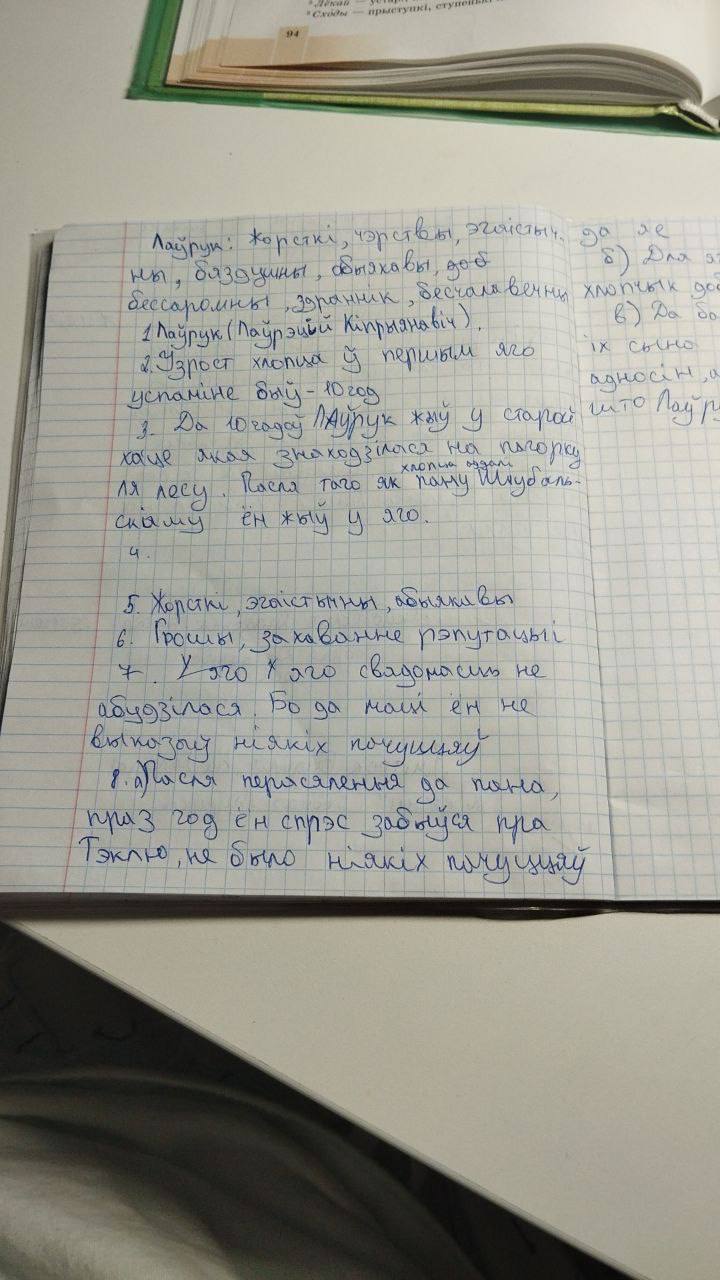 ⁵ Лёкай — устар.
⁶ Сходы — прыступкі, ступенькі
94
Лаўрук: жорсткі, чэрствы, эгаістыч-
ны, бяздушны, абыякавы, доб
бессаромны, здраднік, бесчалавечны
1 Лаўрук (Лаўрэцый Кіпрыянавіч).
2. Узрост хлопца ў першым яго
успаміне быў - 10 год
3. Да 10 гадоў Лаўрук жыў у старой
хаце якая знаходзілася на пагорку
ля лесу. Пасля таго як хлопца аддалі пану Шкубель-
скаму ён жыў у яго.
4.
5. Жорсткі, эгаістычны, абыякавы
6. Грошы, захаванне рэпутацыі
7. У яго У яго свядомасць не
абудзілася. Бо да маці ён не
выказыў ніякіх пачуццяў
8. а) Пасля перасялення да пана,
праз год ён спрэс забыўся пра
Тэклю, не было ніякіх пачуццяў
да яе
б) Для
хлопчык доб
в) Да ба
іх сына
адносін, а
што Лаўр